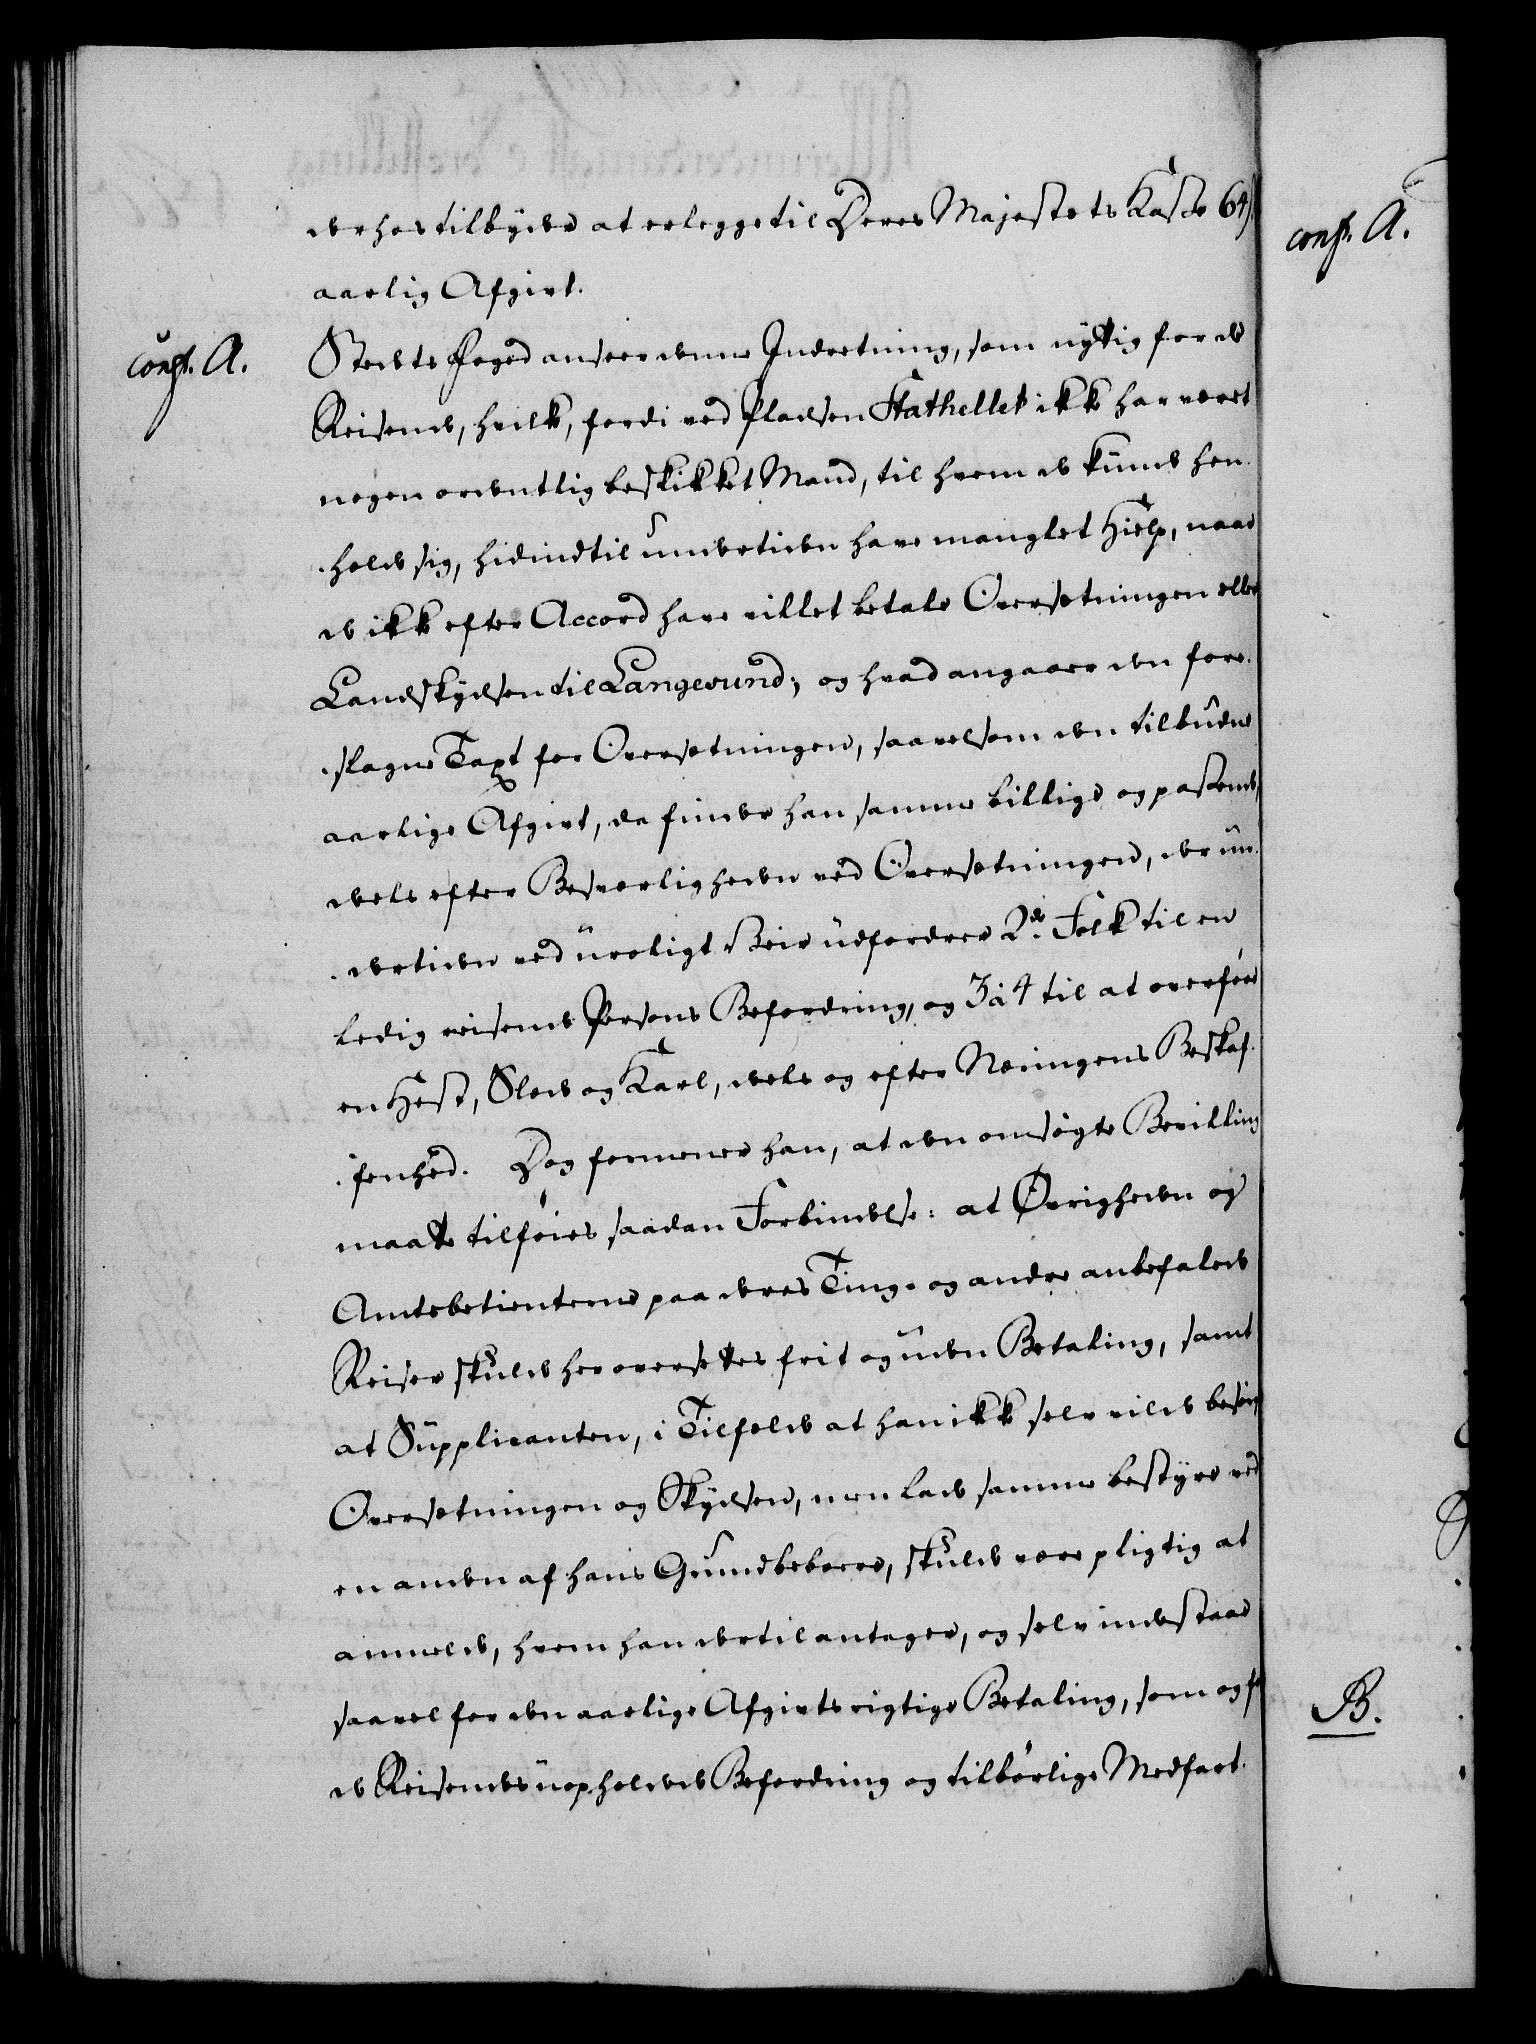 derhos tilbyder at erlegge til Deres Majestets Kasse 64 ß
aarlig Afgivt.
conf. A.
Stedets Foged anseer denne Indretning, som nyttig for de
Reisende, hvilke, fordi ved Pladsen Stathellet ikke har været
nogen ordentlig beskikket Mand, til hvem de kunde hen-
-holde sig, hidindtil undertiden have manglet Hielp, naar
de ikke efter Accord have villet betale Oversetningen eller
Landskydsen til Langesund; og hvad angaaer den fore-
-slagne Taxt for Oversetningen, saavelsom den tilbudne
aarlige Afgivt, da finder han samme billige og passende,
deels efter Besværligheden ved Oversetningen, der un-
-dertiden ved uroligt Veir udfordrer 2de Folk til en
ledig reisende Persons Befordring, og 3 à 4 til at overføre
en Hest, Slæde og Karl, deels og efter Næringens Beskaf-
-fenhed. Dog formener han, at den omsøgte Bevilling
maatte tilføies saadan Forbindelse: at Øvrigheden og
Amtsbetienterne paa deres Ting- og andre anbefalede
Reiser skulde her oversettes frit og uden Betaling, samt
at Supplicanten, i Tilfelde at han ikke selv vilde besørge
Oversetningen og Skydsen, men lade samme bestyre ved
en anden af hans Grundbeboere, skulde være pligtig at
anmelde, hvem han dertil antager, og selv indestaae
saavel for den aarlige Afgivts rigtige Betaling, som og for
de Reisendes uopholdede Befordring og tilbørlige Medfart.
conf. A.
B.